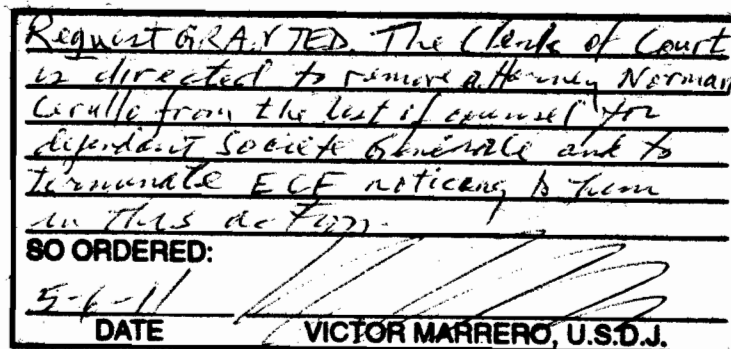 Request GRANTED. The Clerk of Court
is directed to remove attorney Norman
Cerullo from the list of counsel for
defendant Société Générale and to
terminate ECF noticing to him
in this action.
SO ORDERED:
5-6-11
DATE VICTOR MARRERO, U.S.D.J.